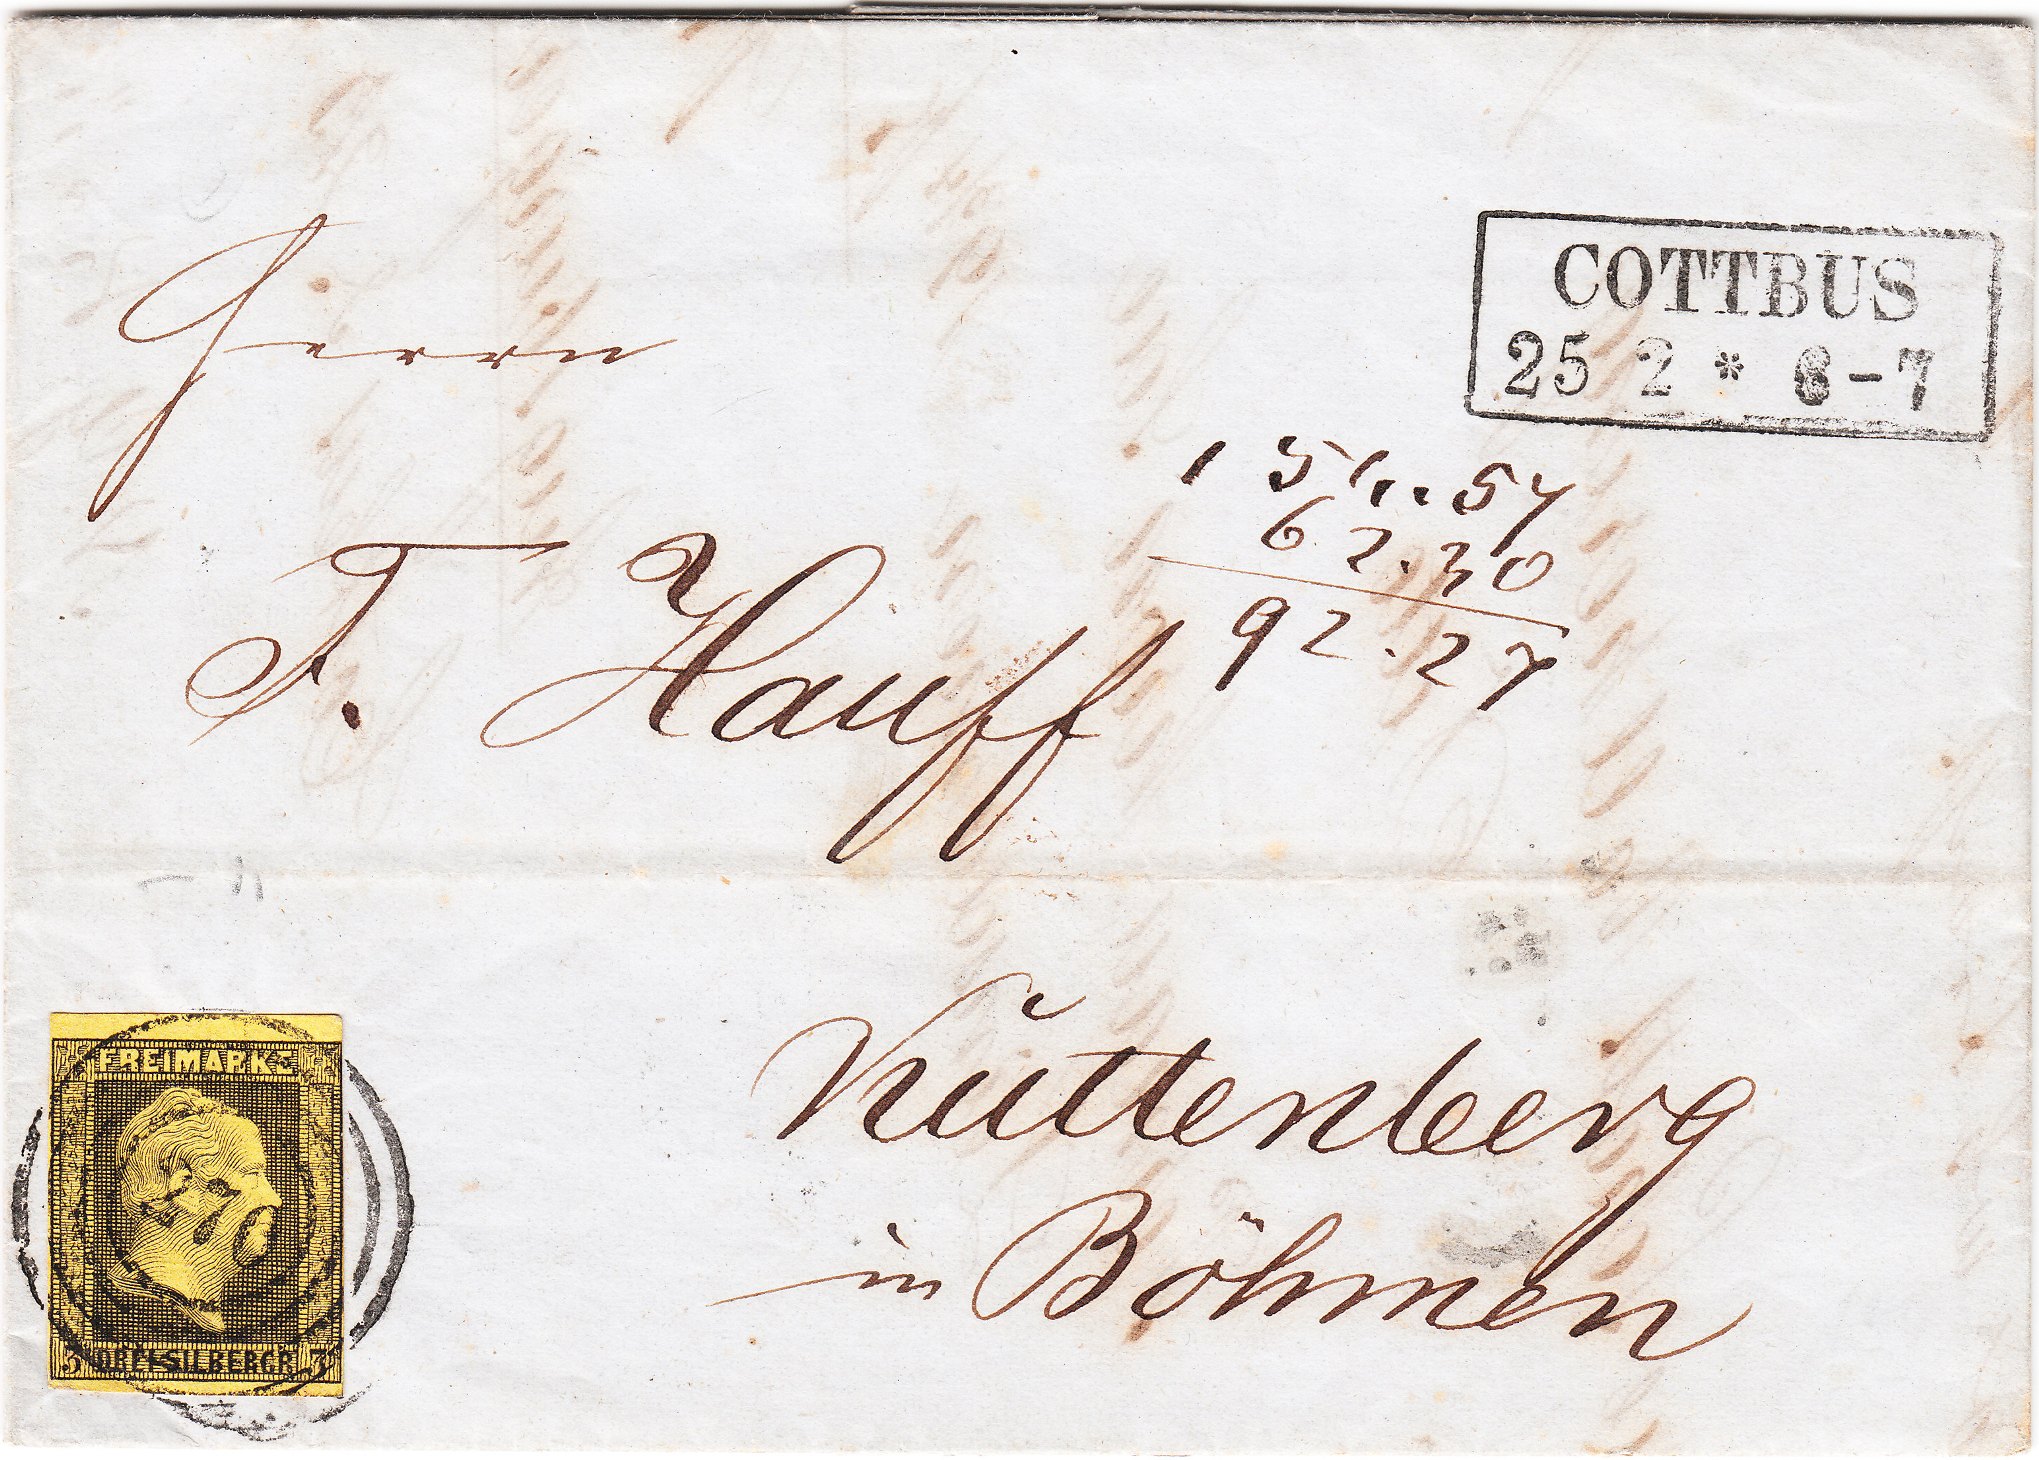 COTTBUS
25 2 * 6-7
Herrn
F. Hauff
154..57
62.30
92.27
Kuttenberg
in Böhmen
FREIMARKE
3 DREI SILBERGR 3